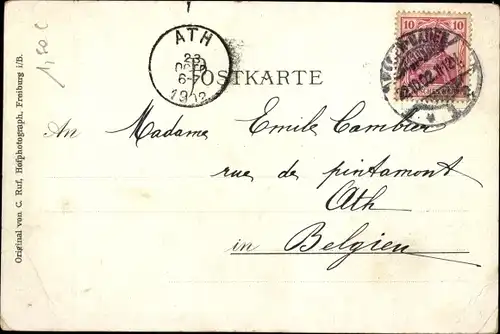 1,50 €
ATH
23
OCT
6-7
1902
POSTKARTE
10
10
An Madame Emile Cambier
rue de pintamont
Ath
in Belgien
Original von C. Ruf, Hofphotograph, Freiburg i/B.